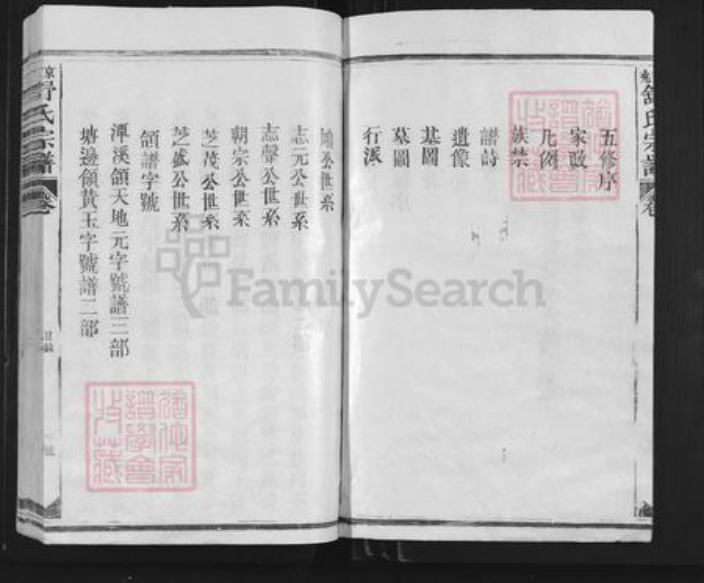 五修序
家政
凡例
族禁
譜詩
遺像
基圖
墓圖
行派
公世系
志元公世系
志聲公世系
朝宗公世系
芝茂公世系
芝盛公世系
領譜字號
潭溪領天地元字號譜三部
塘邊領黃玉字號譜二部
舒氏宗譜
舒氏宗譜
FamilySearch